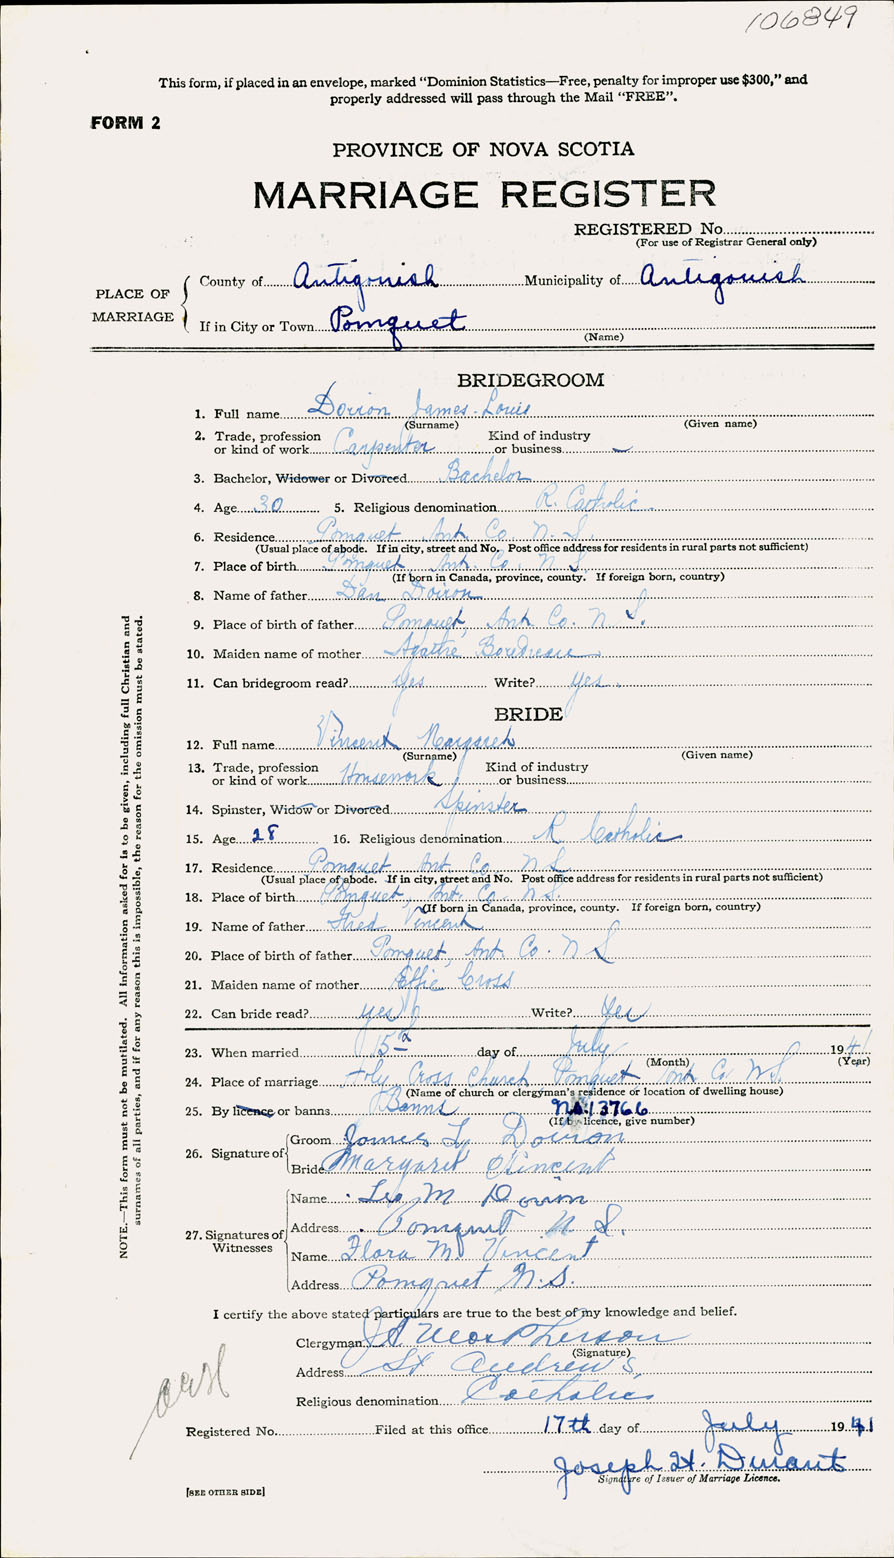 106849
This form, if placed in an envelope, marked "Dominion Statistics—Free, penalty for improper use $300," and
properly addressed will pass through the Mail "FREE".
FORM 2
PROVINCE OF NOVA SCOTIA
MARRIAGE REGISTER
REGISTERED No.
(For use of Registrar General only)
PLACE OF MARRIAGE
County of Antigonish Municipality of Antigonish
If in City or Town Pomquet
(Name)
BRIDEGROOM
1. Full name Doiron James Louis
(Surname) (Given name)
2. Trade, profession or kind of work Carpenter Kind of industry or business —
3. Bachelor, Widower or Divorced Bachelor
4. Age 30 5. Religious denomination R. Catholic
6. Residence Pomquet Ant. Co. N. S.
(Usual place of abode. If in city, street and No. Post office address for residents in rural parts not sufficient)
7. Place of birth Pomquet, Ant. Co. N S
(If born in Canada, province, county. If foreign born, country)
8. Name of father Dan Doiron
9. Place of birth of father Pomquet, Ant Co. N S.
10. Maiden name of mother Agathe Boudreau
11. Can bridegroom read? yes Write? yes.
BRIDE
12. Full name Vincent Margaret
(Surname) (Given name)
13. Trade, profession or kind of work Housework Kind of industry or business
14. Spinster, Widow or Divorced Spinster
15. Age 28 16. Religious denomination R Catholic
17. Residence Pomquet Ant. Co. N S
(Usual place of abode. If in city, street and No. Post office address for residents in rural parts not sufficient)
18. Place of birth Pomquet, Ant. Co. N S.
(If born in Canada, province, county. If foreign born, country)
19. Name of father Fred Vincent
20. Place of birth of father Pomquet, Ant. Co. N S
21. Maiden name of mother Effie Cross
22. Can bride read? yes Write? Yes
23. When married 15 day of July 1941
(Month) (Year)
24. Place of marriage Holy Cross Church Pomquet Ant Co N.S.
(Name of church or clergyman's residence or location of dwelling house)
25. By licence or banns Banns No. 13766
(If by licence, give number)
26. Signature of
Groom James L Doiron
Bride Margaret Vincent
27. Signatures of Witnesses
Name Leo M Doiron
Address Pomquet N S.
Name Flora M. Vincent
Address Pomquet N.S.
I certify the above stated particulars are true to the best of my knowledge and belief.
Clergyman J A MacPherson
(Signature)
Address St Andrew's,
Religious denomination Catholic
Registered No. Filed at this office 17th day of July 1941
Joseph H. Durant
Signature of Issuer of Marriage Licence.
[SEE OTHER SIDE]
NOTE.—This form must not be mutilated. All Information asked for is to be given, including full Christian and
surnames of all parties, and if for any reason this is impossible, the reason for the omission must be stated.